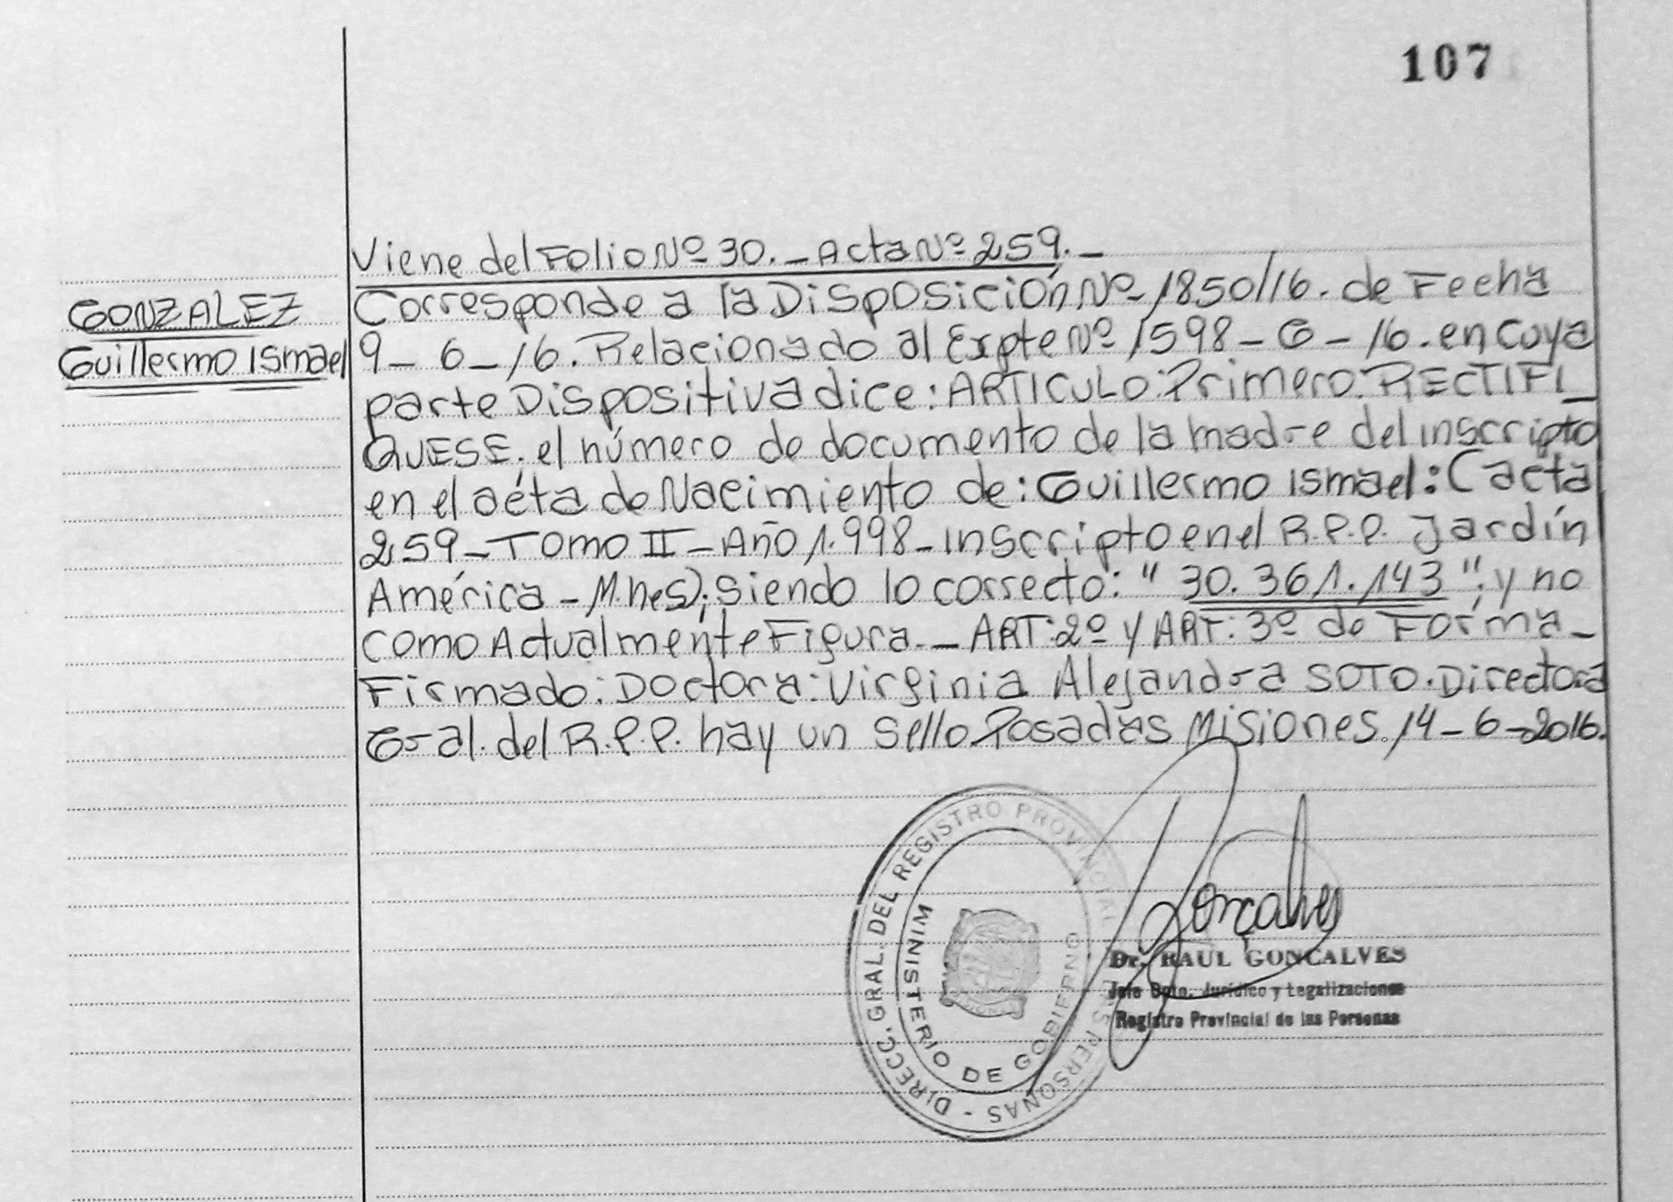 107
Viene del Folio Nº 30. _ Acta Nº 259. _
GONZALEZ
Guillermo Ismael
Corresponde a la Disposición Nº 1850/16. de Fecha
9 _ 6 _ 16. Relacionado al Expte Nº 1598 _ G _ 16. en cuya
parte Dispositiva dice: ARTICULO: Primero: RECTIFI_
QUESE. el número de documento de la madre del inscripto
en el acta de Nacimiento de: Guillermo Ismael: (acta
259 _ Tomo II _ Año 1.998 _ inscripto en el R.P.P. Jardín
América - M.nes); siendo lo correcto: " 30.361.143 "; y no
como Actualmente Figura. _ ART: 2º y ART: 3º de Forma _
Firmado: Doctora: Virginia Alejandra SOTO. Directora
Gral. del R.P.P. hay un sello. Posadas Misiones. 14 - 6 - 2016.
DIRECC. GRAL. DEL REGISTRO PROVINCIAL DE LAS PERSONAS -
MINISTERIO DE GOBIERNO
Gonçalves
Dr. RAUL GONCALVES
Jefe Dpto. Jurídico y Legalizaciones
Registro Provincial de las Personas